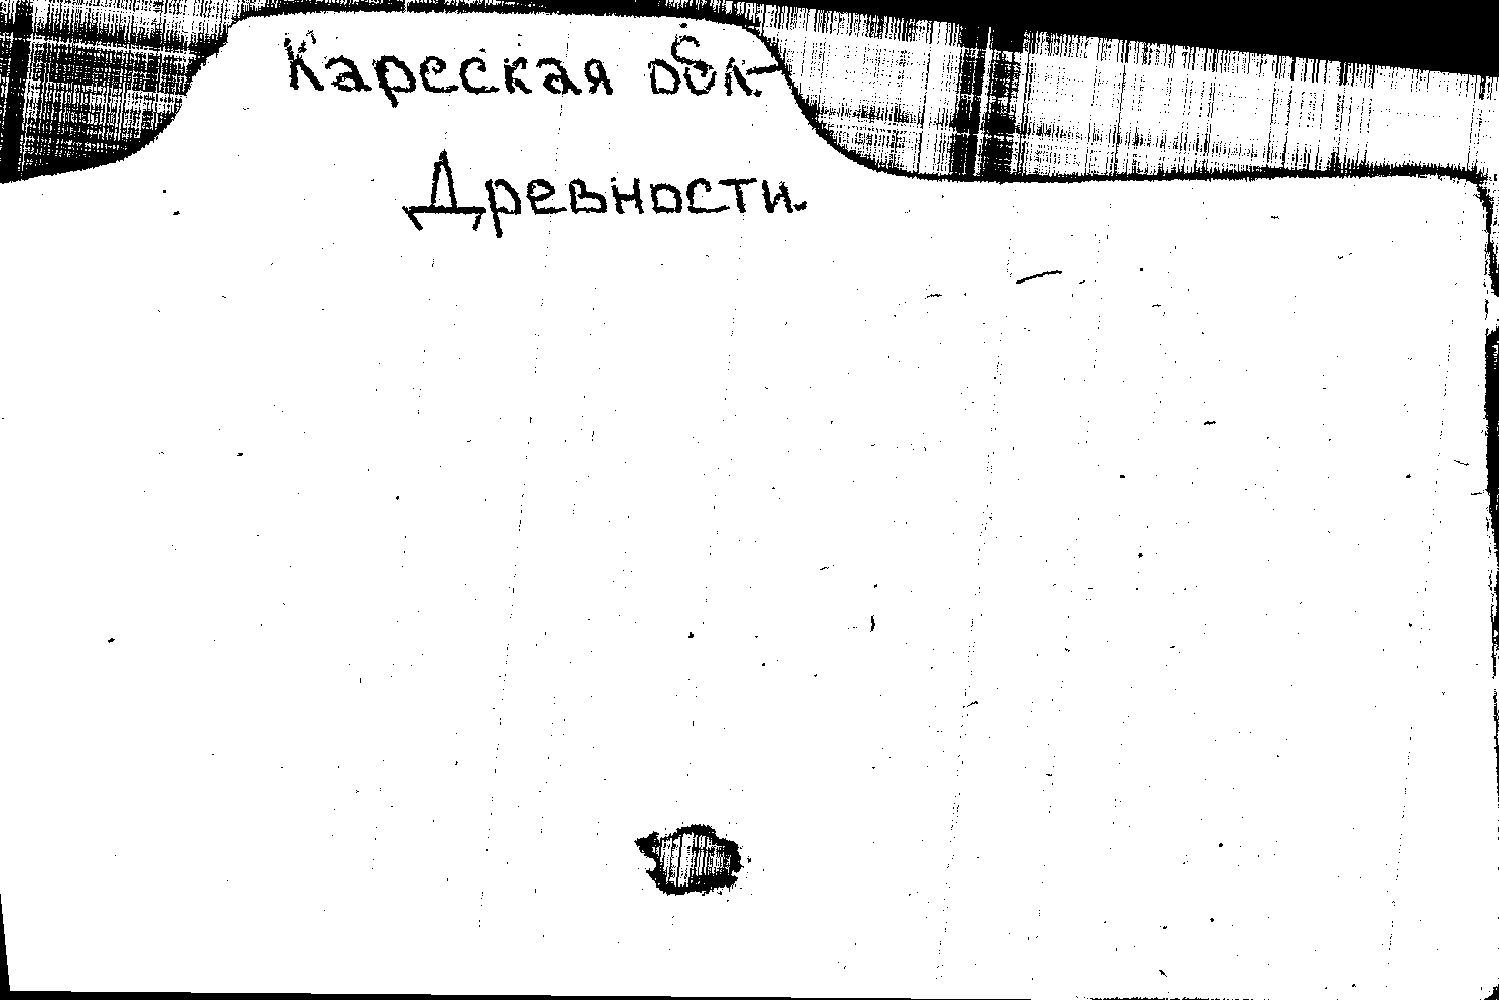 Карсская обл.
Древности.